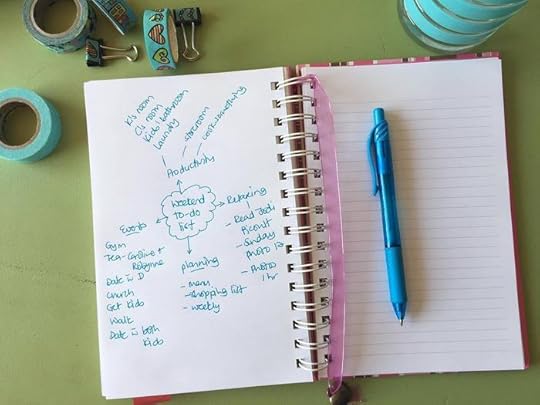 K's room
C's room
Kids' bathroom
Laundry
storeroom
cook something
Productivity
Weekend
To-do
list
Events
Gym
Tea - Caroline +
Robynne
Date c̄ D
Church
Get Kids
Walk
Date c̄ both
Kids
planning
- menu
- shopping list
- weekly
Relaxing
- Read Jodi
Picoult
- Sunday
Photo
- Photo
1 hr